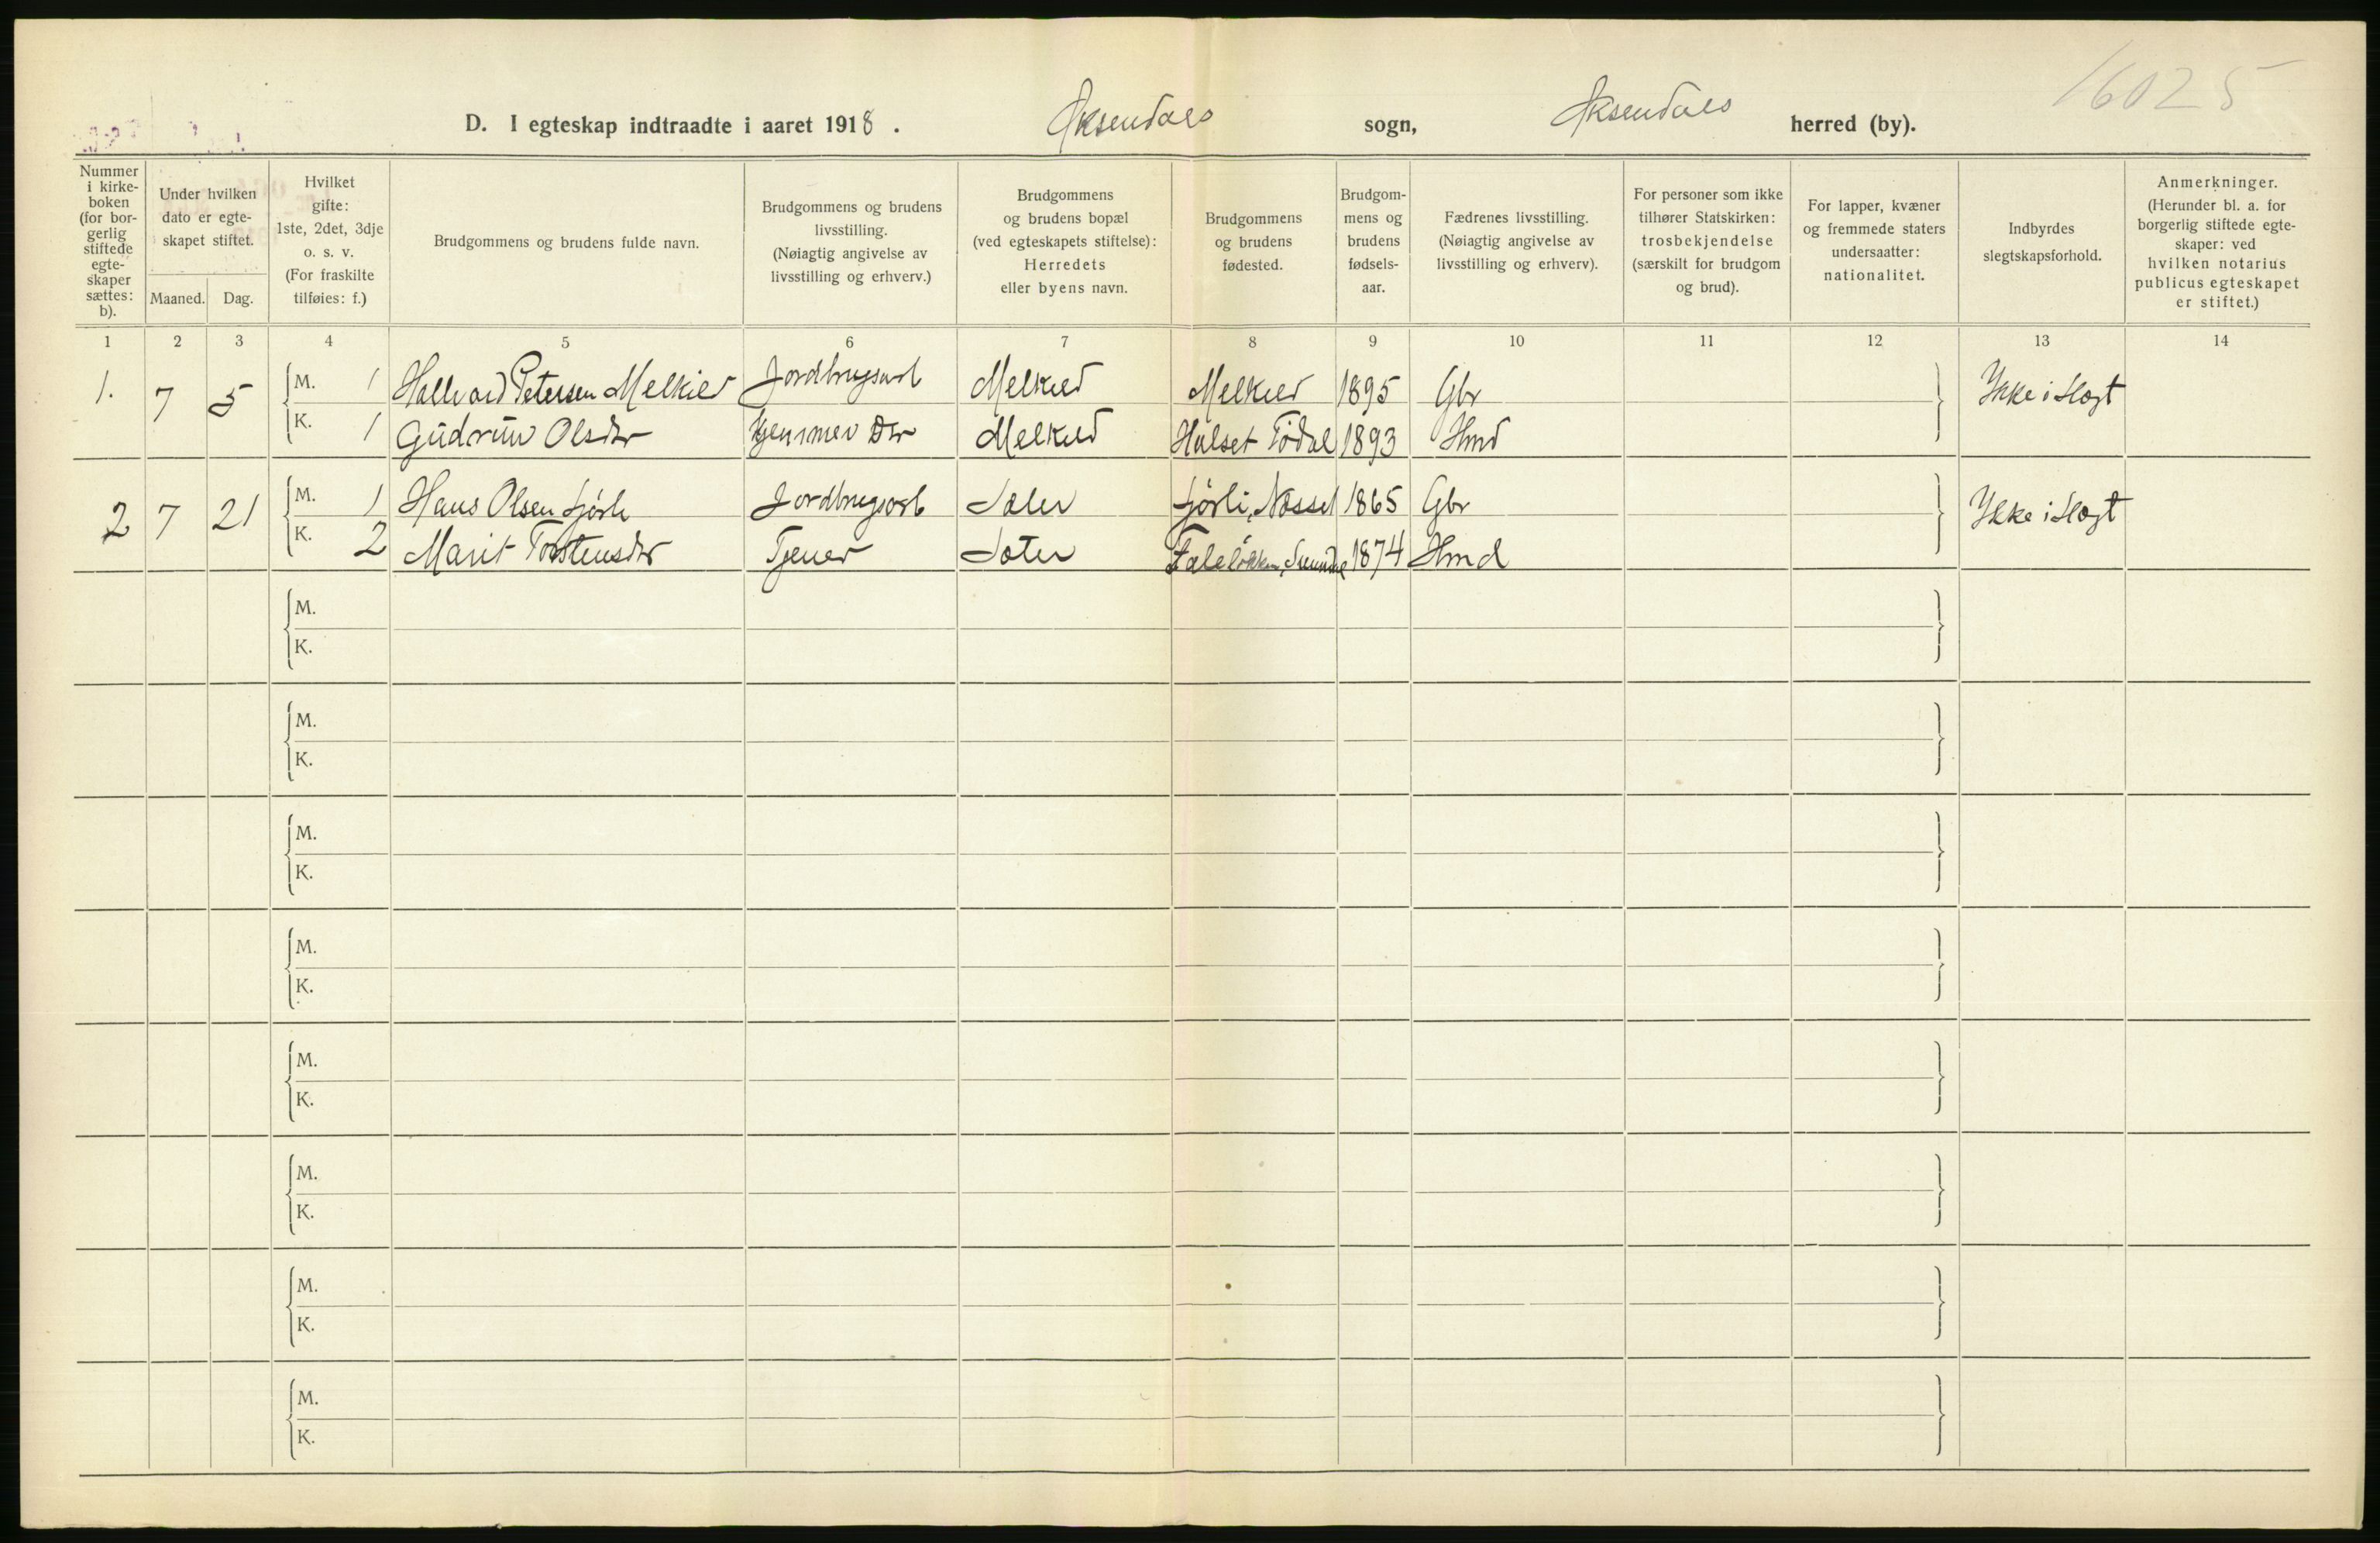 16025
D. I egteskap indtraadte i aaret 1918. Øksendals sogn, Øksendals herred (by).
Nummer i kirke-boken (for bor-gerlig stiftede egte-skaper sættes: b).
Under hvilken dato er egte-skapet stiftet.
Maaned. Dag.
Hvilket gifte: 1ste, 2det, 3dje o. s. v. (For fraskilte tilføies: f.)
Brudgommens og brudens fulde navn.
Brudgommens og brudens livsstilling. (Nøiagtig angivelse av livsstilling og erhverv.)
Brudgommens og brudens bopæl (ved egteskapets stiftelse): Herredets eller byens navn.
Brudgommens og brudens fødested.
Brudgom-mens og brudens fødsels-aar.
Fædrenes livsstilling. (Nøiagtig angivelse av livsstilling og erhverv).
For personer som ikke tilhører Statskirken: trosbekjendelse (særskilt for brudgom og brud).
For lapper, kvæner og fremmede staters undersaatter: nationalitet.
Indbyrdes slegtskapsforhold.
Anmerkninger. (Herunder bl. a. for borgerlig stiftede egte-skaper: ved hvilken notarius publicus egteskapet er stiftet.)
1 2 3 4 5 6 7 8 9 10 11 12 13 14
1. 7 5 M. 1 Hallvard Petersen Melkild Jordbrugsarb Melkild Melkild 1895 Gbr Ikke i slægt
K. 1 Gudrun Olsdtr Hjemmev Dtr Melkild Halset Tödal 1893 Hmd
2 7 21 M. 1 Hans Olsen Fjørli Jordbrugsarb Sæter Fjørli, Nesset 1865 Gbr Ikke i slægt
K. 2 Marit Torstensdtr Tjener Sæter 1874 Hmd
M.
K.
M.
K.
M.
K.
M.
K.
M.
K.
M.
K.
M.
K.
M.
K.